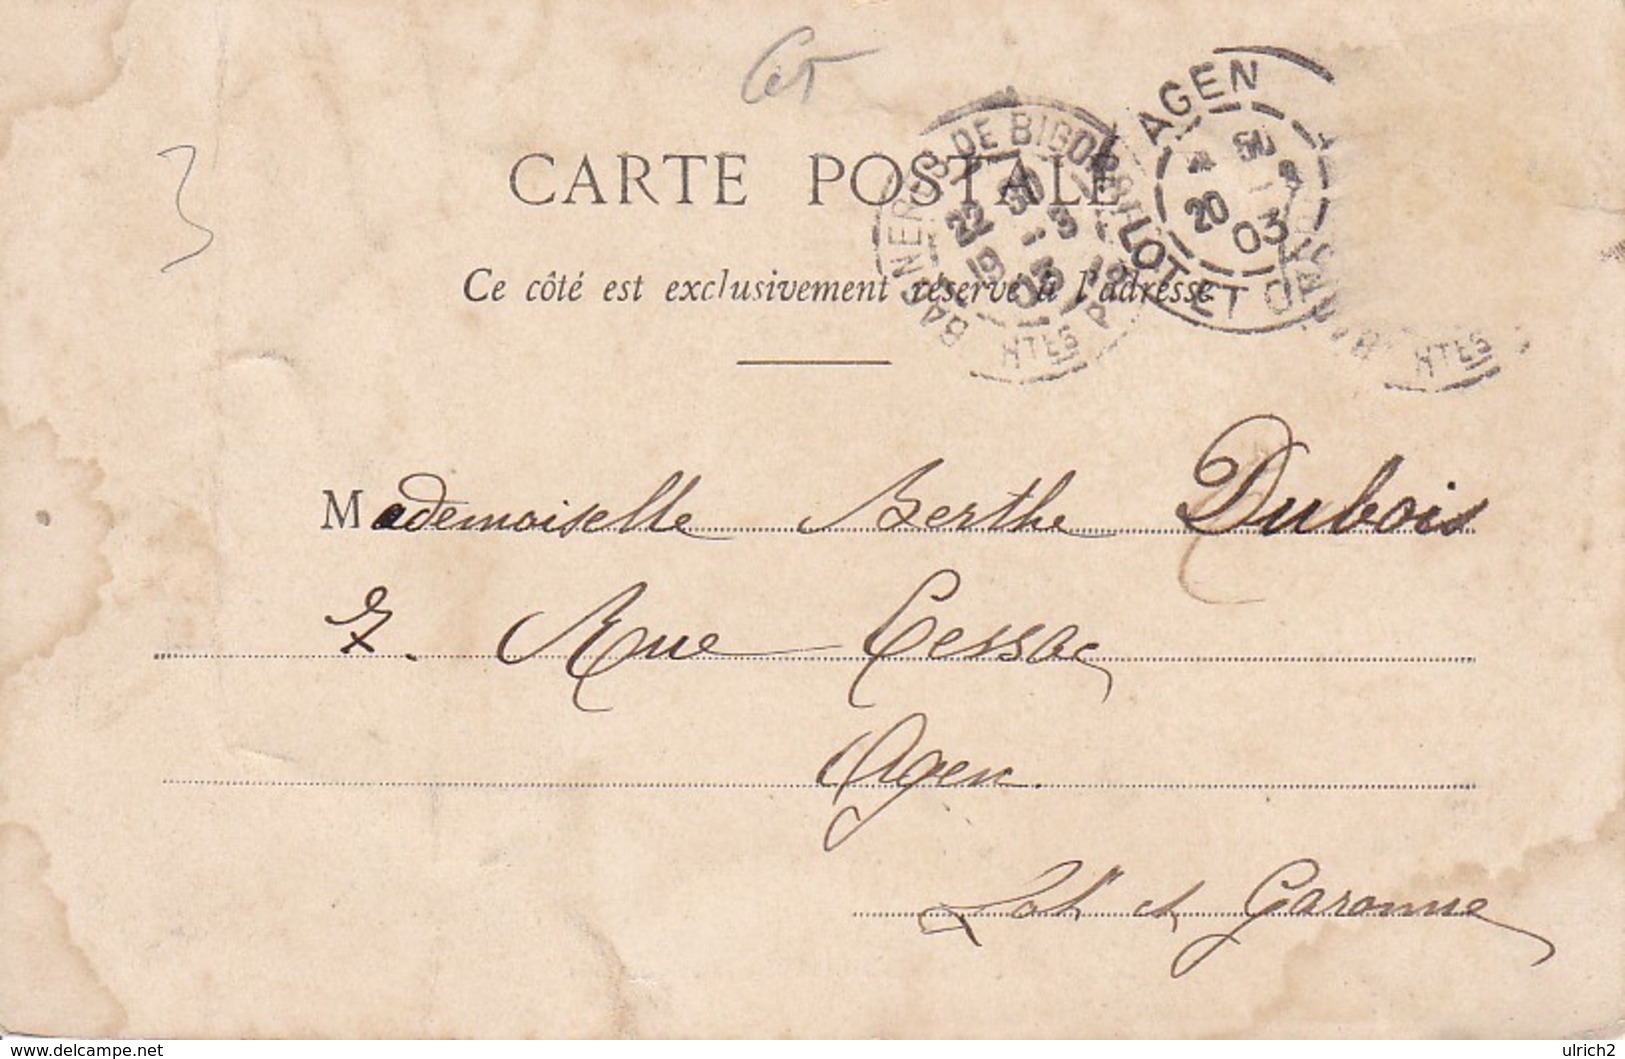 3
CARTE POSTALE
Ce côté est exclusivement réservé à l'adresse
BAGNERES DE BIGORRE
Htes PYR
AGEN
20
03
LOT ET G
Htes
Mademoiselle Berthe Dubois
7. Rue Cessac
Agen.
Lot et Garonne
www.delcampe.net
ulrich2